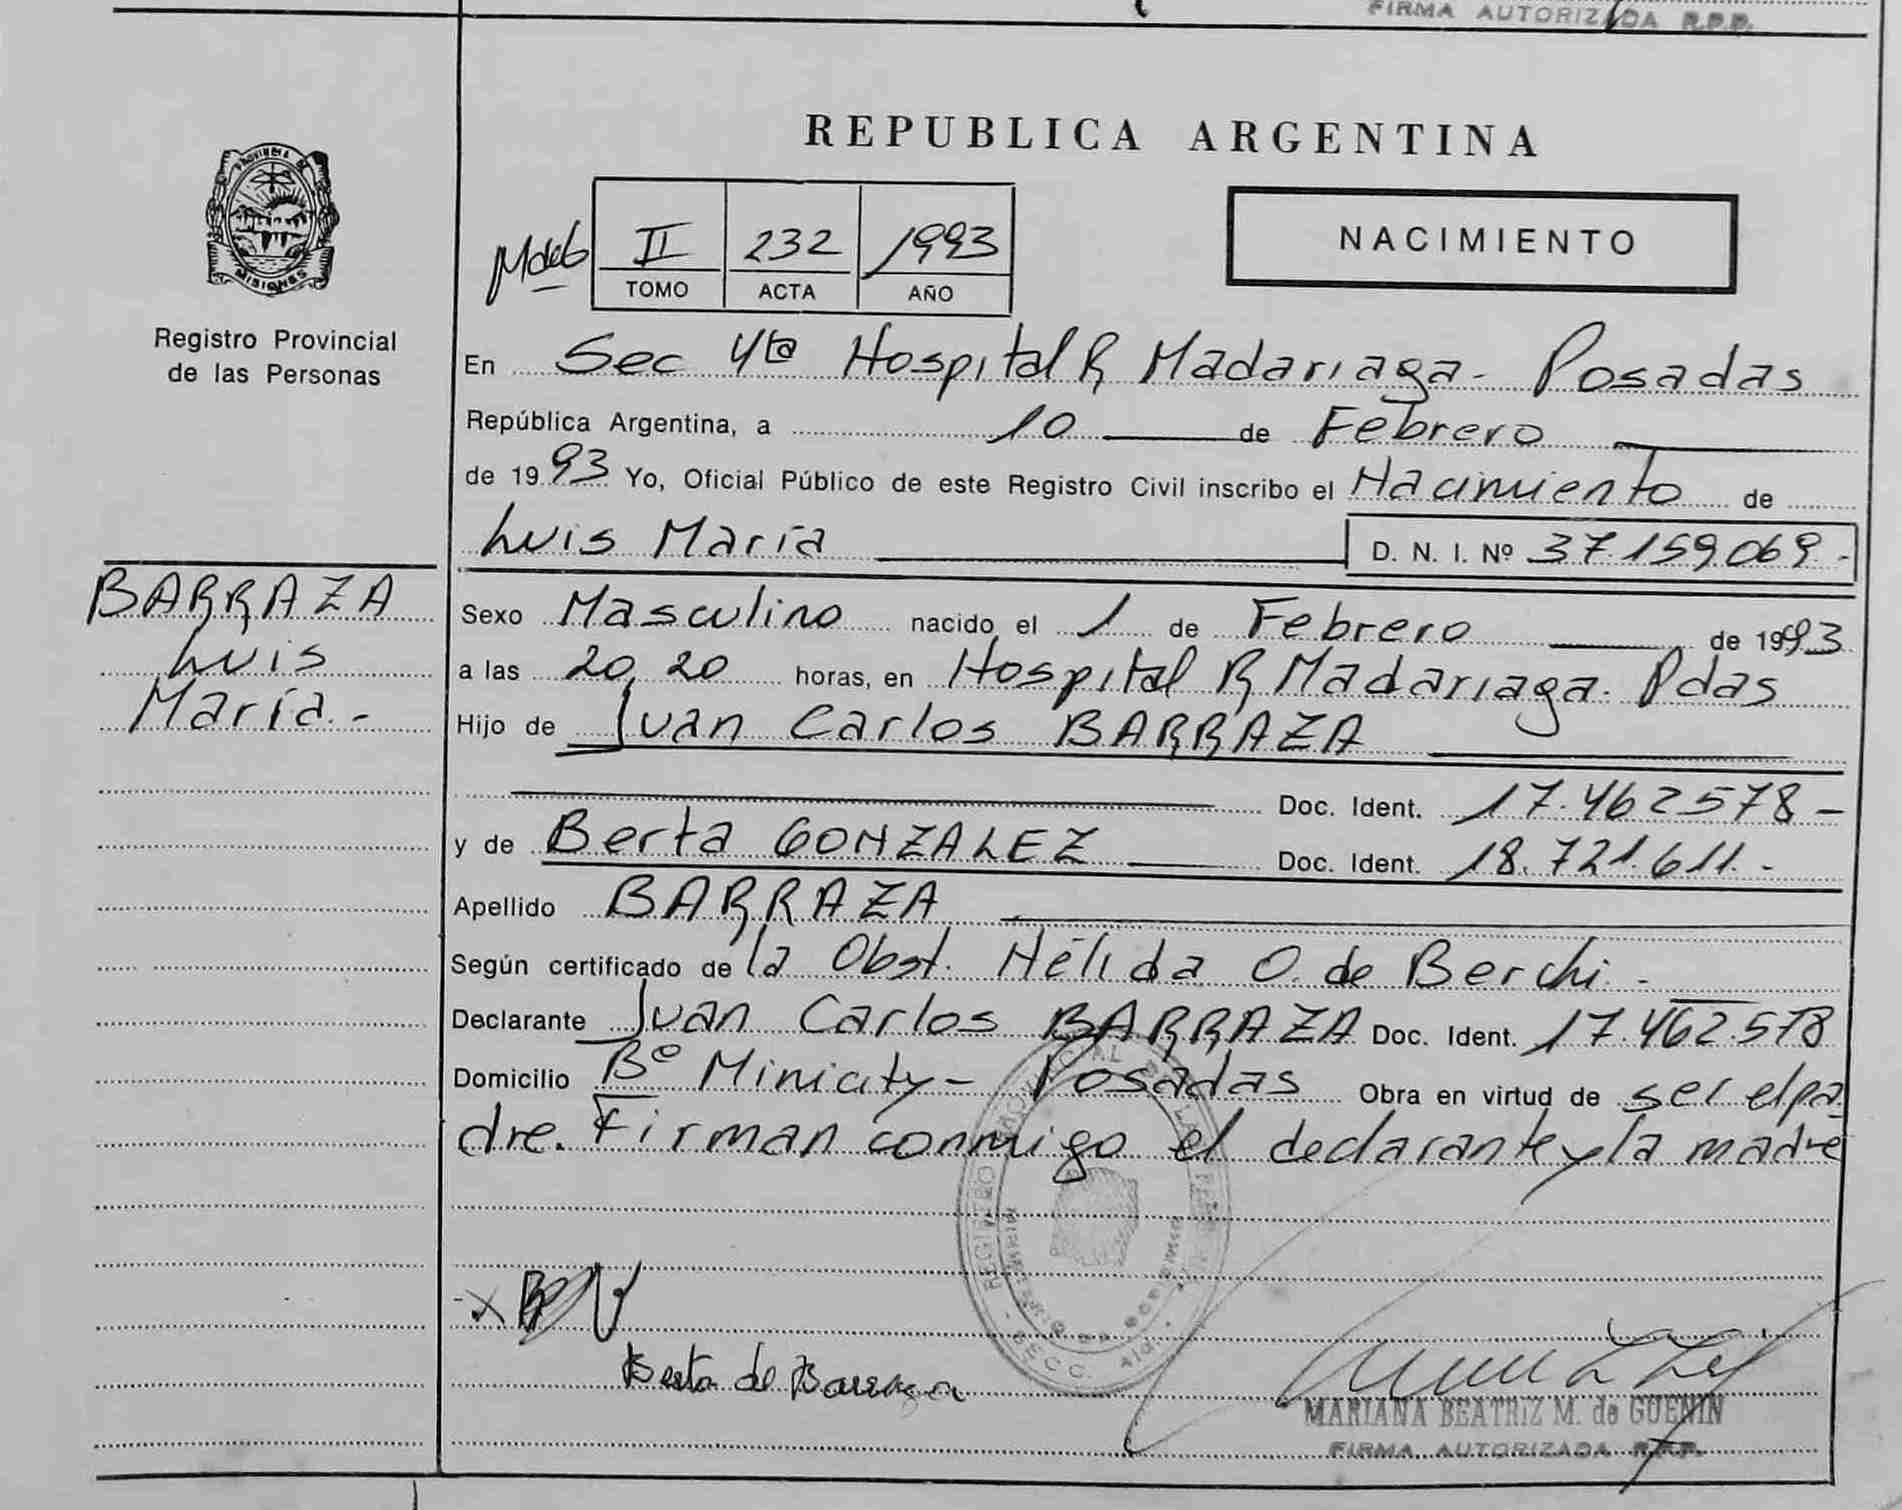 FIRMA AUTORIZADA R.P.P.
REPUBLICA ARGENTINA
PROVINCIA DE
MISIONES
Registro Provincial
de las Personas
II 232 1993
TOMO ACTA AÑO
NACIMIENTO
En Sec 4ta Hospital R Madariaga - Posadas
República Argentina, a 10 de Febrero
de 1993 Yo, Oficial Público de este Registro Civil inscribo el Nacimiento de
Luis María D. N. I. Nº 37.159.069.-
BARRAZA
Luis
María.-
Sexo Masculino nacido el 1 de Febrero de 1993
a las 20,20 horas, en Hospital R Madariaga. Pdas
Hijo de Juan Carlos BARRAZA
Doc. Ident. 17.462578-
y de Berta GONZALEZ Doc. Ident. 18.721.611.-
Apellido BARRAZA
Según certificado de la Obst. Nélida O. de Berchi.-
Declarante Juan Carlos BARRAZA Doc. Ident. 17.462.578
Domicilio Bº Minicity - Posadas Obra en virtud de ser el pa
dre. Firman conmigo el declarante y la madre
REGISTRO PROVINCIAL DE LAS
SECC.
Berta de Barraza
MARIANA BEATRIZ M. de GUENIN
FIRMA AUTORIZADA R.P.P.